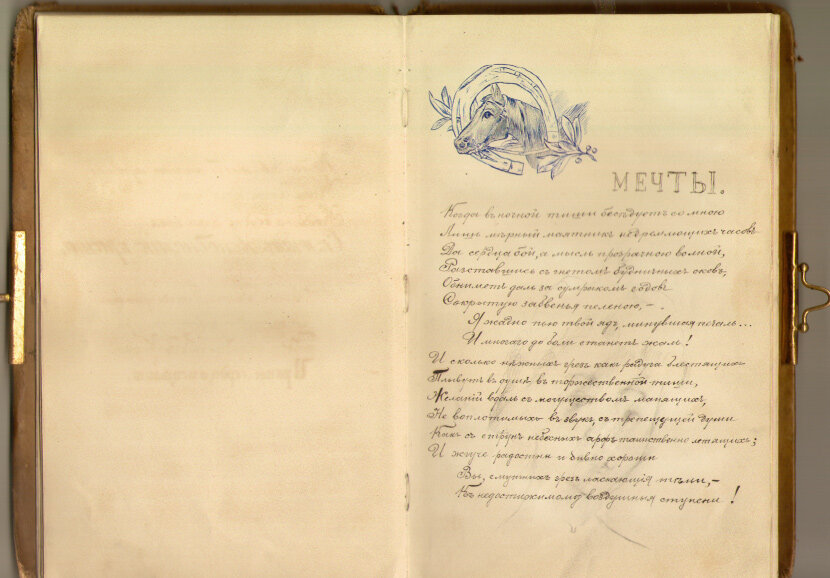 МЕЧТЫ.
Когда въ ночной тиши бесѣдуетъ со мною
Лишь мѣрный маятникъ недремлющихъ часовъ
Да сердца бой, а мысль прозрачною волной,
Разставшись съ гнетомъ будничныхъ оковъ,
Обниметъ даль за сумракомъ годовъ
Сокрытую забвенья пеленою, –
Я жадно пью твой ядъ, минувшая печаль...
И многаго до боли станетъ жаль!
И сколько нѣжныхъ грезъ какъ радуга блестящихъ
Плывутъ въ душѣ, въ торжественной тиши,
Желаній вдаль съ могуществомъ манящихъ,
Не воплотимыхъ въ звукъ, съ трепещущей души
Какъ съ струнъ небесныхъ арфъ таинственно летящихъ;
И жгуче радостны и дивно хороши
Вы, смутныхъ грезъ ласкающія тѣни, –
Къ недостижимому воздушныя ступени!